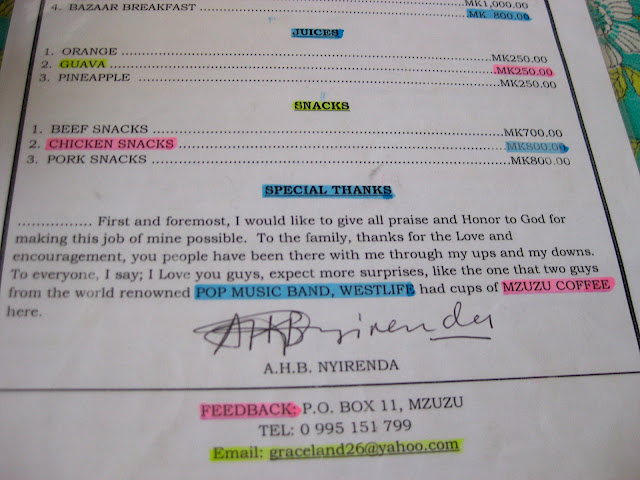 4. BAZAAR BREAKFAST ........................................ MK1,000.00
MK 800.00
JUICES
1. ORANGE ........................................ MK250.00
2. GUAVA ........................................ MK250.00
3. PINEAPPLE ........................................ MK250.00
SNACKS
1. BEEF SNACKS ........................................ MK700.00
2. CHICKEN SNACKS ........................................ MK800.00
3. PORK SNACKS ........................................ MK800.00
SPECIAL THANKS
................. First and foremost, I would like to give all praise and Honor to God for
making this job of mine possible. To the family, thanks for the Love and
encouragement, you people have been there with me through my ups and my downs.
To everyone, I say; I Love you guys, expect more surprises, like the one that two guys
from the world renowned POP MUSIC BAND, WESTLIFE had cups of MZUZU COFFEE
here.
AHBNyirenda
A.H.B. NYIRENDA
FEEDBACK: P.O. BOX 11, MZUZU
TEL: 0 995 151 799
Email: graceland26@yahoo.com